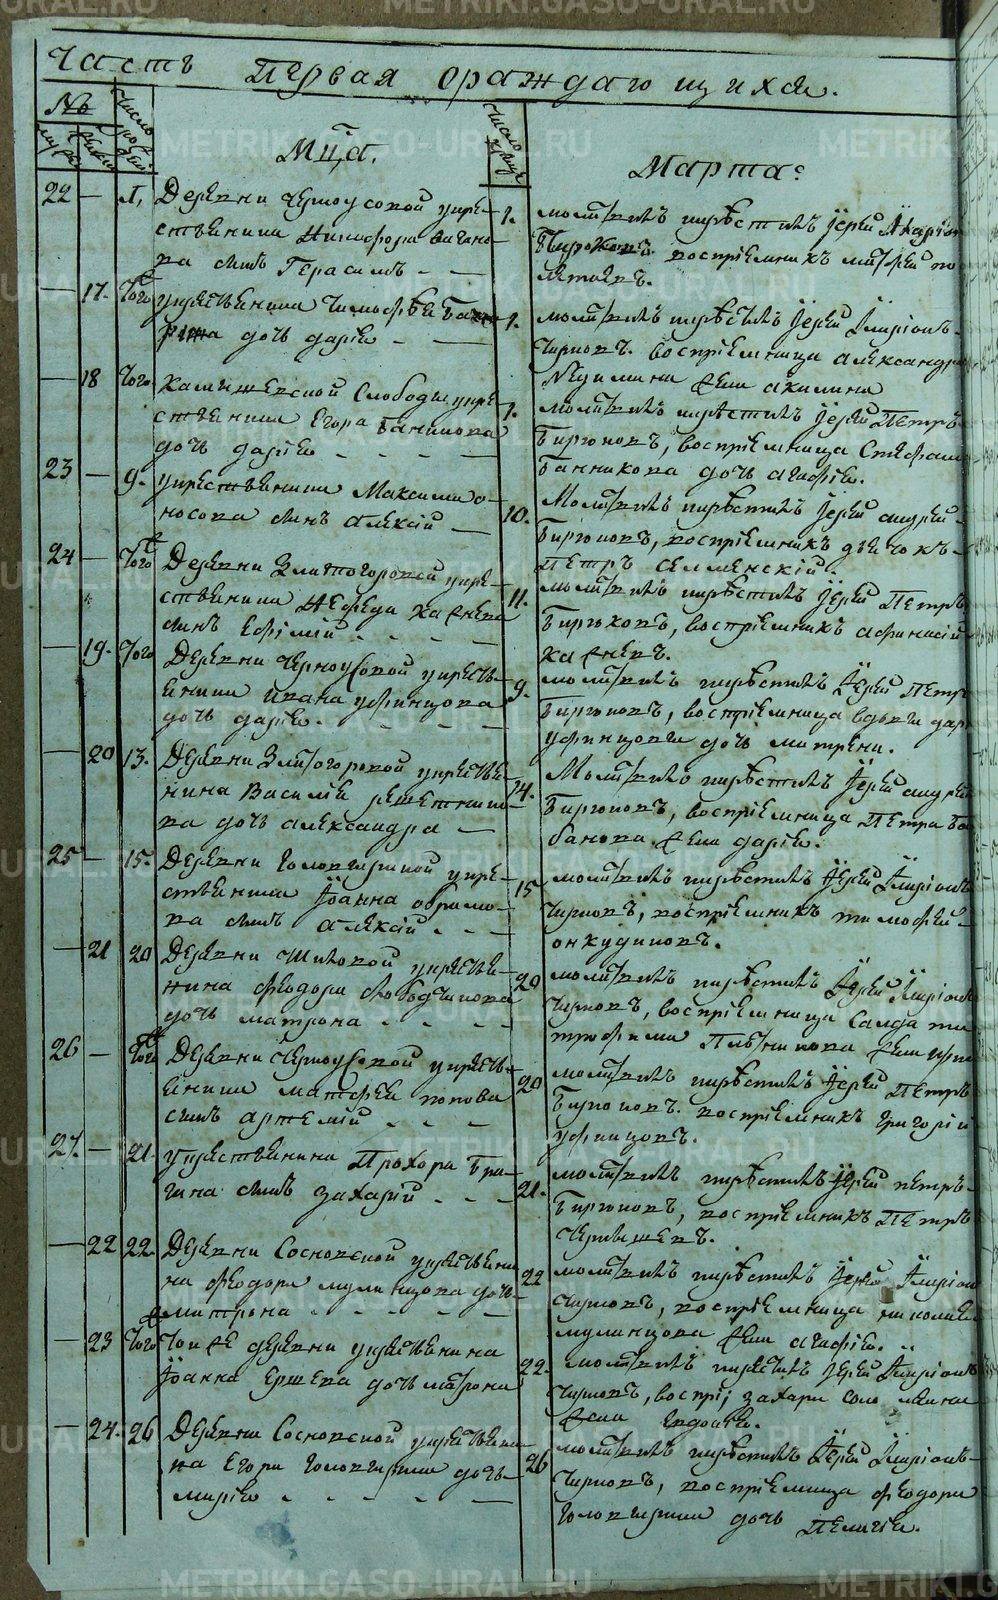 Часть Первая ораждающихся.
№
Число рожден
Мца.
Число крещ
Марта:
22 — 1, Деревни Черноусовой у крестьянина Никифора Ваганова сынъ Герасимъ
1. молит: и крестилъ Іерей Иларіон Бирюковъ воспріемникъ
17. Того у крестьянина Тимофея дочь дарія
1. молит: и крестилъ Іерей Иларіонъ Чирковъ. воспріемница александра жена акилина
18 Того Камышевской Слободы у крестьянина Егора Банникова дочь дарія
1. молит: и крестилъ Іерей Петръ Бирюковъ, воспріемница Стефана Банникова дочь агафія.
23 — 9. у крестьянина Максима Носова сынъ алексій
10. Молит: и крестилъ Іерей андрей Бирюковъ, воспріемникъ дьячокъ Петръ Селменскій.
24 — Того Деревни Златогоровой у крестьянина Нефеда Каснева сынъ Ефимій
11. молит: и крестилъ Іерей Петръ Бирюковъ, воспріемникъ афанасій Касневъ.
19. Того Деревни Черноусовой у крестьянина Ивана Уфинцова дочь дарія.
9. молит: и крестилъ Іерей Петръ Бирюковъ, воспріемница вдовы дарьи Уфинцовы дочь матрена.
20 13. Деревни Златогоровой у крестьянина Василія решетникова дочь александра
14. Молит: и крестилъ Іерей андрей Бирюковъ, воспріемница Петра жена дарія.
25 — 15. Деревни Головыриной у крестьянина Іоанна абрамова сынъ алексій
15 молит: и крестилъ Іерей Иларіонъ Чирковъ, воспріемникъ тимофей онкудиновъ.
21 20 Деревни Шиловой у крестьянина феодора слободчикова дочь матрона
20 молит: и крестилъ Іерей Иларіонъ Чирковъ, воспріемница Солдата трофима Плотникова жена
26 — Того Деревни Черноусовой у крестьянина матфея попова сынъ артемій
20 молит: и крестилъ Іерей Петръ Бирюковъ. воспріемникъ григорій уфинцовъ.
27. — 21 у крестьянина Прохора Брагина сынъ захарій
21. молит: и крестилъ Іерей петръ Бирюковъ, воспріемникъ Петръ Чернышевъ.
22 22 Деревни Сосновской у крестьянина феодора мулинцова дочь матрона
22 молит: и крестилъ Іерей Иларіон Чирковъ, воспріемница николая мулинцова жена агафія.
23 Того Той же деревни у крестьянина Іоанна Ершева дочь матрона
22. молит: и крестилъ Іерей Иларіонъ Чирковъ, воспрі; захара жена Евдокія.
24. 26 Деревни Сосновской у крестьянина Егора Головырина дочь марія
26 молит: и крестилъ Іерей Иларіонъ Чирковъ, воспріемница феодора Головырина дочь Пелагія.
METRIKI.GASO-URAL.RU